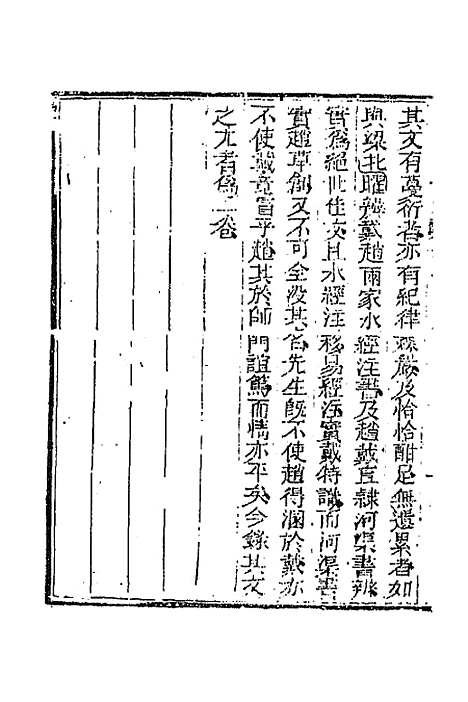 其文有蔓衍者亦有紀律森嚴及恰恰酣足無遺累者如
與梁北曜辨戴趙兩家水經注書及趙戴直隸河渠書辨
實爲絕世佳文且水經注移易經注實戴特識而河渠書
實趙草創又不可全沒其名先生旣不使趙得溷於戴亦
不使戴竟冒乎趙其於師門誼篤而情亦平矣今錄其文
之尤者爲二卷